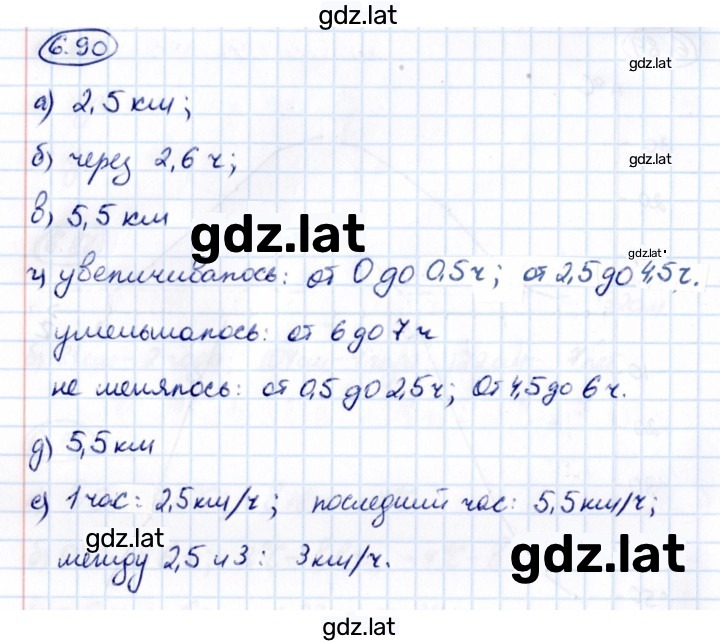 gdz.lat
6.90
gdz.lat
а) 2,5 км;
б) через 2,6 ч;
gdz.lat
в) 5,5 км
gdz.lat
gdz.lat
г) увеличивалось: от 0 до 0,5 ч; от 2,5 до 4,5 ч.
уменьшалось: от 6 до 7 ч
не менялось: от 0,5 до 2,5 ч; От 4,5 до 6 ч.
д) 5,5 км
е) 1 час: 2,5 км/ч; последний час: 5,5 км/ч;
gdz.lat
между 2,5 и 3: 3 км/ч.
gdz.lat
gdz.lat